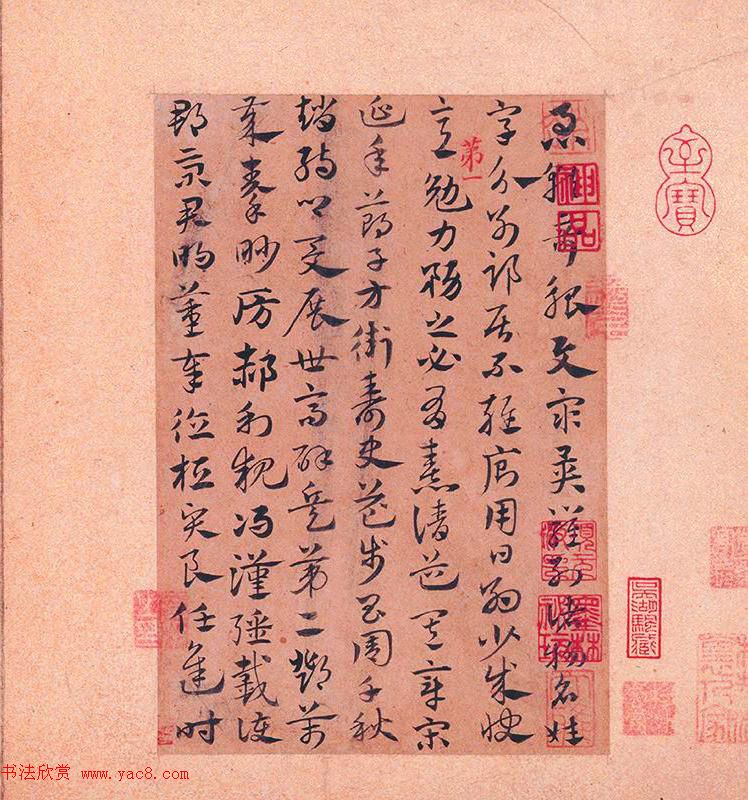 急就奇觚與衆異羅列諸物名姓
字分別部居不雜廁用日約少誠快
第一
意勉力務之必有憙請道其章宋
延年鄭子方衛益壽史步昌周千秋
趙孺卿爰展世高辟兵第二鄧萬
歲秦眇房郝利親馮漢彊戴護
郡景君明董奉德桓賢良任逢時
神品
书法欣赏 www.yac8.com